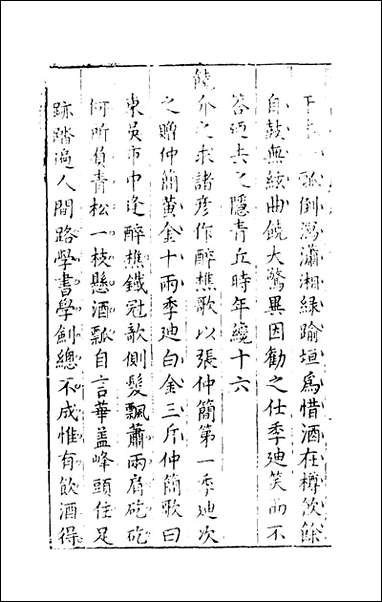 下⋯瓢倒瀉瀟湘綠踰垣為惜酒在樽飲餘
自鼓無絃曲饒大驚異因勸之仕季迪笑而不
荅徑去之隱青丘時年纔十六
饒介之求諸彦作醉樵歌以張仲簡第一季迪次
之贈仲簡黃金十兩季迪白金三斤仲簡歌曰
東吳市中逢醉樵鐵冠欹側髮飄蕭兩肩矻矻
何所負青松一枝懸酒瓢自言華盖峰頭住足
跡踏遍人間路學書學劍總不成惟有飲酒得